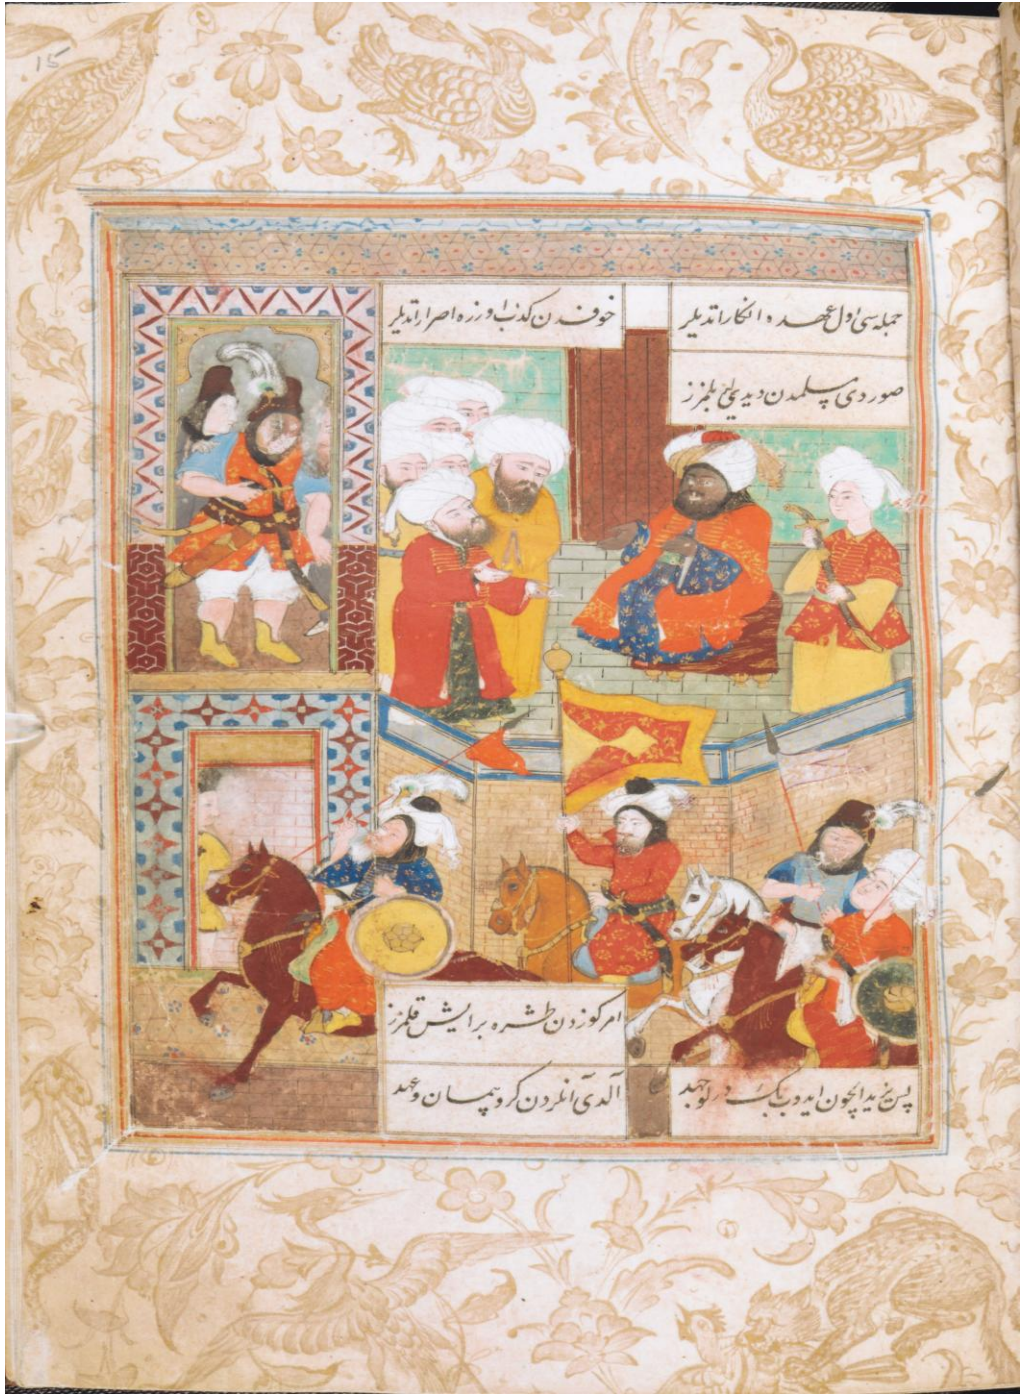 15
جمله سی اول عهده انکار اتدیلر
خوفدن کذب اوزره اصرار اتدیلر
صوردی مسلمدن دیدی بلمزز
امر کوزدن طشره بر ایش قلمزز
پس یزید ایچون ایدوب بیک در لو جهد
آلدی آنلردن کرو پیمان و عهد